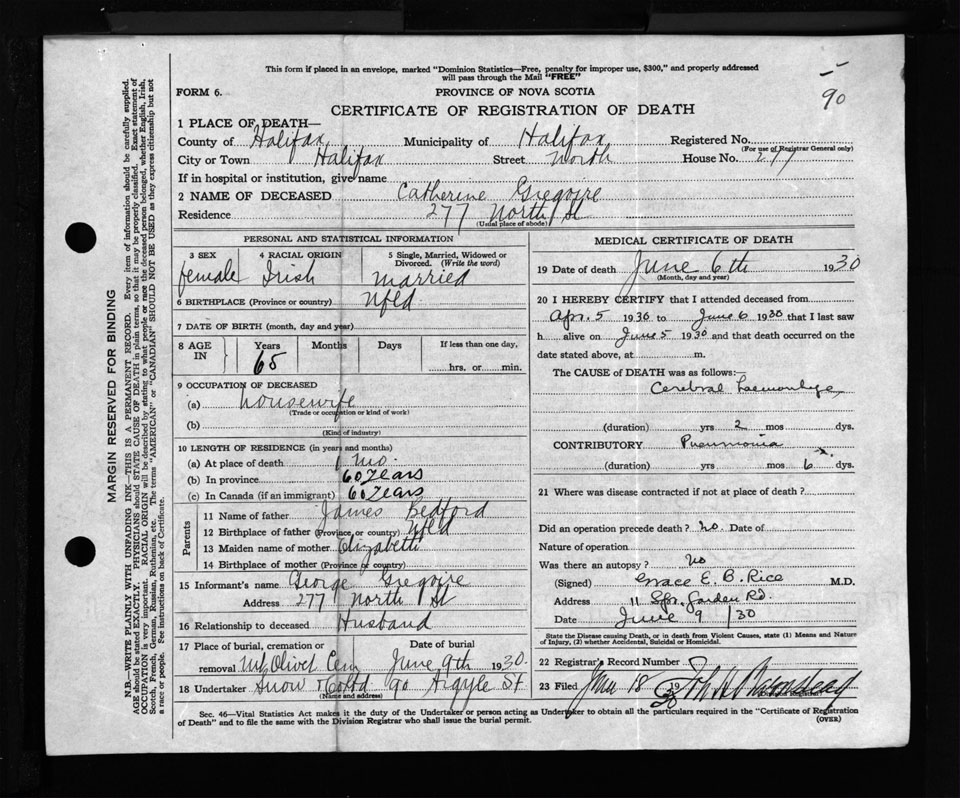 This form if placed in an envelope, marked "Dominion Statistics—Free, penalty for improper use, $300," and properly addressed
will pass through the Mail "FREE"
90
FORM 6.
PROVINCE OF NOVA SCOTIA
CERTIFICATE OF REGISTRATION OF DEATH
1 PLACE OF DEATH—
County of Halifax Municipality of Halifax Registered No.
(For use of Registrar General only)
City or Town Halifax Street North House No. 277
If in hospital or institution, give name
2 NAME OF DECEASED Catherine Gregoire
Residence 277 North St
(Usual place of abode)
PERSONAL AND STATISTICAL INFORMATION
3 SEX 4 RACIAL ORIGIN 5 Single, Married, Widowed or
Divorced. (Write the word)
female Irish married
6 BIRTHPLACE (Province or country) Nfld
7 DATE OF BIRTH (month, day and year)
8 AGE IN Years Months Days If less than one day,
65 hrs. or min.
9 OCCUPATION OF DECEASED
(a) housewife
(Trade or occupation or kind of work)
(b)
(Kind of industry)
10 LENGTH OF RESIDENCE (in years and months)
(a) At place of death 1 mo.
(b) In province 60 Years
(c) In Canada (if an immigrant) 60 Years
Parents
11 Name of father James Bedford
12 Birthplace of father (Province or country) Nfld
13 Maiden name of mother Elizabeth
14 Birthplace of mother (Province or country)
15 Informant's name George Gregoire
Address 277 North St
16 Relationship to deceased Husband
17 Place of burial, cremation or Date of burial
removal Mt Olivet Cem June 9th 1930.
18 Undertaker Snow & Co Ltd 90 Argyle St
(Name and address)
MEDICAL CERTIFICATE OF DEATH
19 Date of death June 6th 1930
(Month, day and year)
20 I HEREBY CERTIFY that I attended deceased from
Apr. 5 1930 to June 6 1930 that I last saw
h alive on June 5 1930 and that death occurred on the
date stated above, at m.
The CAUSE of DEATH was as follows:—
Cerebral haemorrhage
(duration) yrs 2 mos dys.
CONTRIBUTORY Pneumonia
(duration) yrs mos 6 dys.
21 Where was disease contracted if not at place of death?
Did an operation precede death? no. Date of
Nature of operation
Was there an autopsy? No
(Signed) Grace E. B. Rice M.D.
Address 11 Spr. Garden Rd.
Date June 9 /30
State the Disease causing Death, or in death from Violent Causes, state (1) Means and Nature
of Injury, (2) whether Accidental, Suicidal or Homicidal.
22 Registrar's Record Number
23 Filed June 18 1930
Sec. 46—Vital Statistics Act makes it the duty of the Undertaker or person acting as Undertaker to obtain all the particulars required in the "Certificate of Registration
of Death" and to file the same with the Division Registrar who shall issue the burial permit. (OVER)
MARGIN RESERVED FOR BINDING
N.B.—WRITE PLAINLY WITH UNFADING INK—THIS IS A PERMANENT RECORD. Every item of information should be carefully supplied.
AGE should be stated EXACTLY. PHYSICIANS should STATE CAUSE OF DEATH in plain terms, so that it may be properly classified. Exact statement of
OCCUPATION is very important. RACIAL ORIGIN will be described by stating to what people or race the deceased person belonged, whether English, Irish,
Scotch, French, German, Russian, Ruthenian, etc. The terms "AMERICAN" or "CANADIAN" SHOULD NOT BE USED as they express citizenship but not
a race or people. See instructions on back of Certificate.